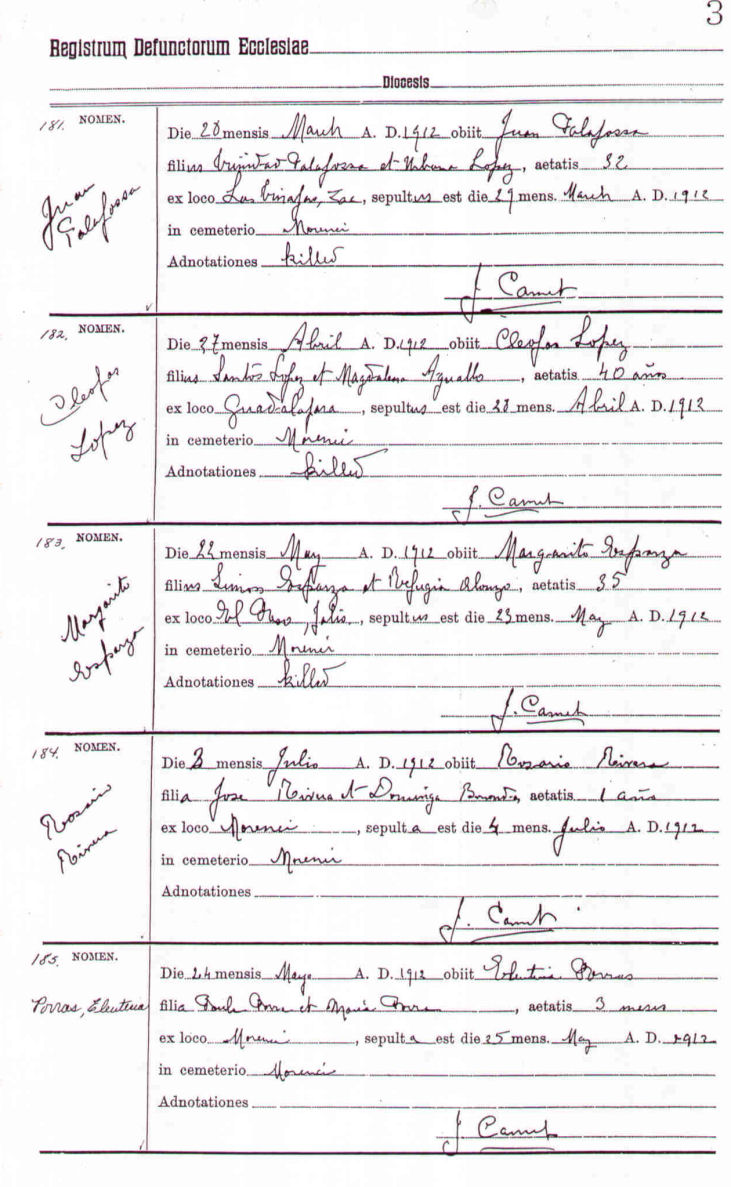 3
Registrum Defunctorum Ecclesiae
Diocesis
181. NOMEN.
Juan
Die 28 mensis March A. D. 1912 obiit Juan
filius Trinidad et Urbana Lopez, aetatis 32
ex loco Las, Zac, sepultus est die 29 mens. March A. D. 1912
in cemeterio Morenci
Adnotationes killed
J. Camet
182. NOMEN.
Cleofas
Lopez
Die 27 mensis Abril A. D. 1912 obiit Cleofas Lopez
filius Santos Lopez et Magdalena, aetatis 40 años
ex loco Guadalajara, sepultus est die 28 mens. Abril A. D. 1912
in cemeterio Morenci
Adnotationes killed
J. Camet
183. NOMEN.
Margarito
Esparza
Die 22 mensis May A. D. 1912 obiit Margarito Esparza
filius Esparza et Refugia Alonzo, aetatis 35
ex loco, sepultus est die 23 mens. May A. D. 1912
in cemeterio Morenci
Adnotationes killed
J. Camet
184. NOMEN.
Rosario
Rivera
Die 3 mensis Julio A. D. 1912 obiit Rosario Rivera
filia Jose Rivera et Dominga, aetatis 1 año
ex loco Morenci, sepulta est die 4 mens. Julio A. D. 1912
in cemeterio Morenci
Adnotationes
J. Camet
185. NOMEN.
Porras, Eleuteria
Die 24 mensis Mayo A. D. 1912 obiit Eleuteria Porras
filia et Maria, aetatis 3 meses
ex loco Morenci, sepulta est die 25 mens. May A. D. 1912
in cemeterio Morenci
Adnotationes
J. Camet